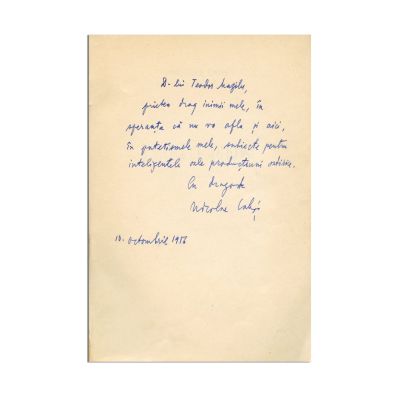 D-lui Teodor Mazilu,
prieten drag inimii mele, în
speranța că nu va afla și aici,
în pateticele mele, subiecte pentru
inteligentele sale producțiuni satirice.
Cu dragoste
Nicolae Labiș
10. octombrie 1956